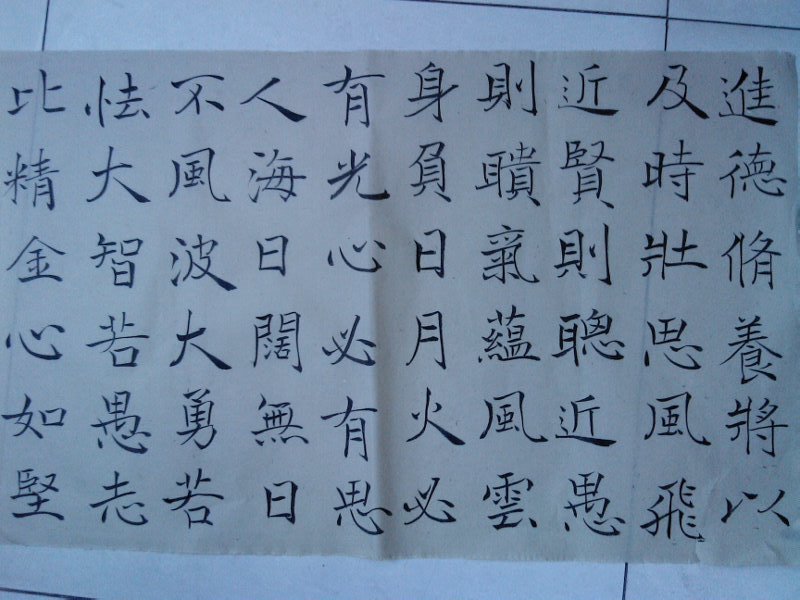 進德脩養將以
及時壯思風飛
近賢則聰近愚
則聵氣蘊風雲
身負日月火必
有光心必有思
人海日闊無日
不風波大勇若
怯大智若愚志
比精金心如堅